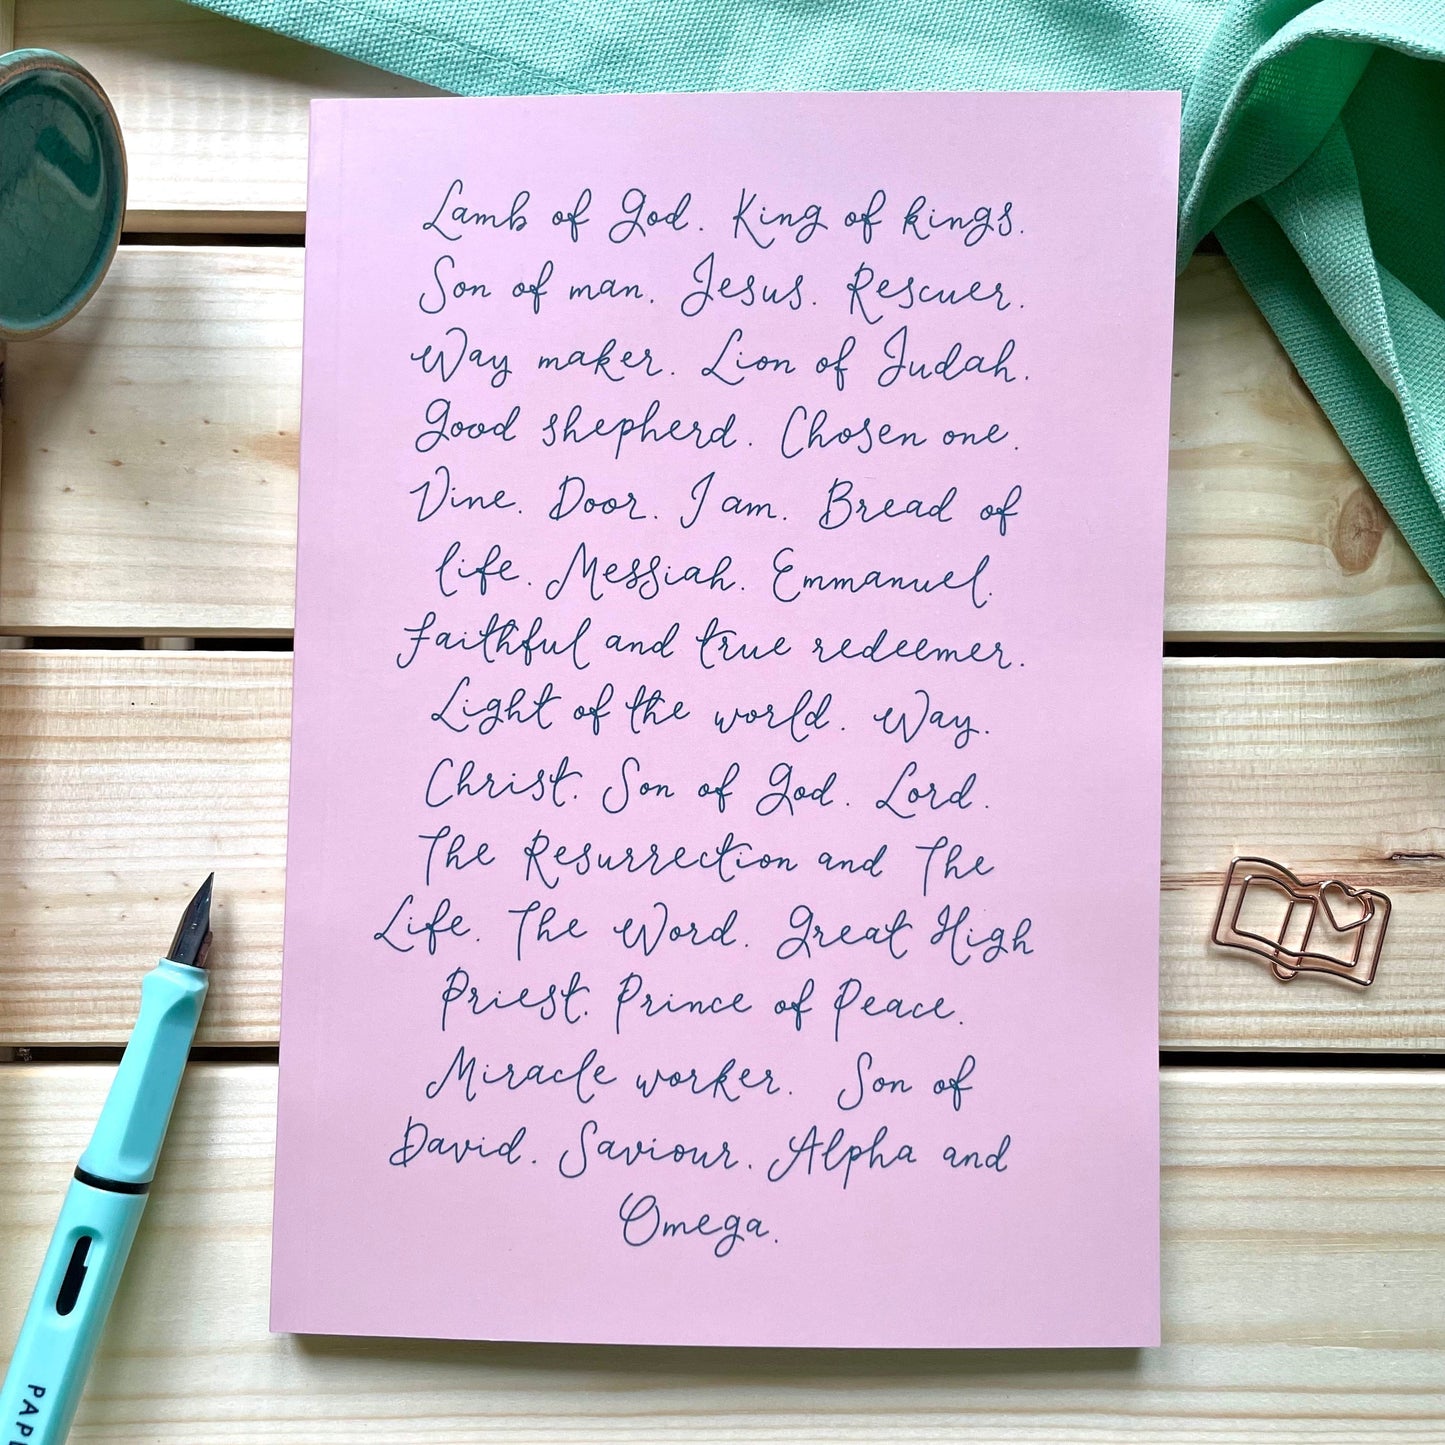 Lamb of God. King of kings.
Son of man. Jesus. Rescuer.
Way maker. Lion of Judah.
Good shepherd. Chosen one.
Vine. Door. I am. Bread of
life. Messiah. Emmanuel.
Faithful and true redeemer.
Light of the world. Way.
Christ. Son of God. Lord.
The Resurrection and The
Life. The Word. Great High
Priest. Prince of Peace.
Miracle worker. Son of
David. Saviour. Alpha and
Omega.